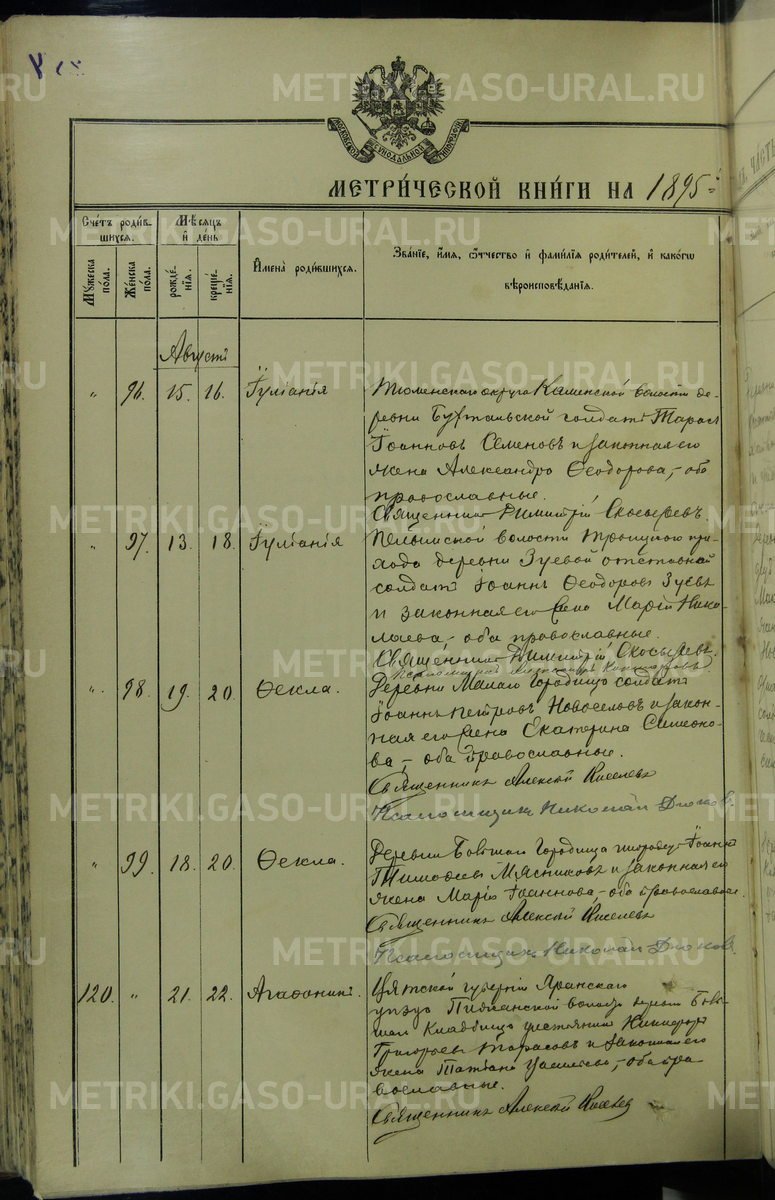 МЕТРИ́ЧЕСКОЙ КНИ́ГИ НА 1895
Сче́тъ роди́в-
шихся.
Му́жеска по́ла.
Же́нска по́ла.
Мѣ́сяцъ
и҆ де́нь
рожде́-
нїѧ.
креще́-
нїѧ.
И҆мена̀ роди́вшихся.
Зва́нїе, и҆́мѧ, ѻ҆́тчество и҆ фами́лїѧ роди́телей, и҆ како́гѡ
вѣроисповѣ́данїѧ.
Августъ
„ 96. 15. 16. Іуліанія
Тюменскаго округа Каменской волости де-
ревни солдатъ Тарасъ
Іоанновъ Семеновъ и законная его
жена Александра Ѳеодорова, оба
православные.
Священникъ Димитрій Скосыревъ.
„ 97. 13. 18. Іуліанія
волости Троицкаго при-
хода деревни Зуевой отставной
солдатъ Іоаннъ Ѳеодоровъ Зуевъ
и законная его жена Марія Нико-
лаева, оба православные.
Священникъ Димитрій Скосыревъ.
„ 98. 19. 20. Ѳекла.
Деревни Малаго Городища солдатъ
Іоаннъ Петровъ Новоселовъ и закон-
ная его жена Екатерина Симеоно-
ва, оба православные.
Священникъ Алексій Киселевъ
Псаломщикъ Николай
„ 99. 18. 20. Ѳекла.
Деревни Большаго Городища инородецъ Іоаннъ
Тимофеевъ Мясниковъ и законная его
жена Марія Іоаннова, оба православные.
Священникъ Алексій Киселевъ
Псаломщикъ Николай
120. „ 21. 22. Агаѳоникъ.
Вятской губерніи Яранскаго
уѣзда волости деревни Боль-
шаго Кладбища крестьянинъ Никифоръ
Григорьевъ Тарасовъ и законная его
жена Татіана, оба пра-
вославные.
Священникъ Алексій Киселевъ
METRIKI.GASO-URAL.RU